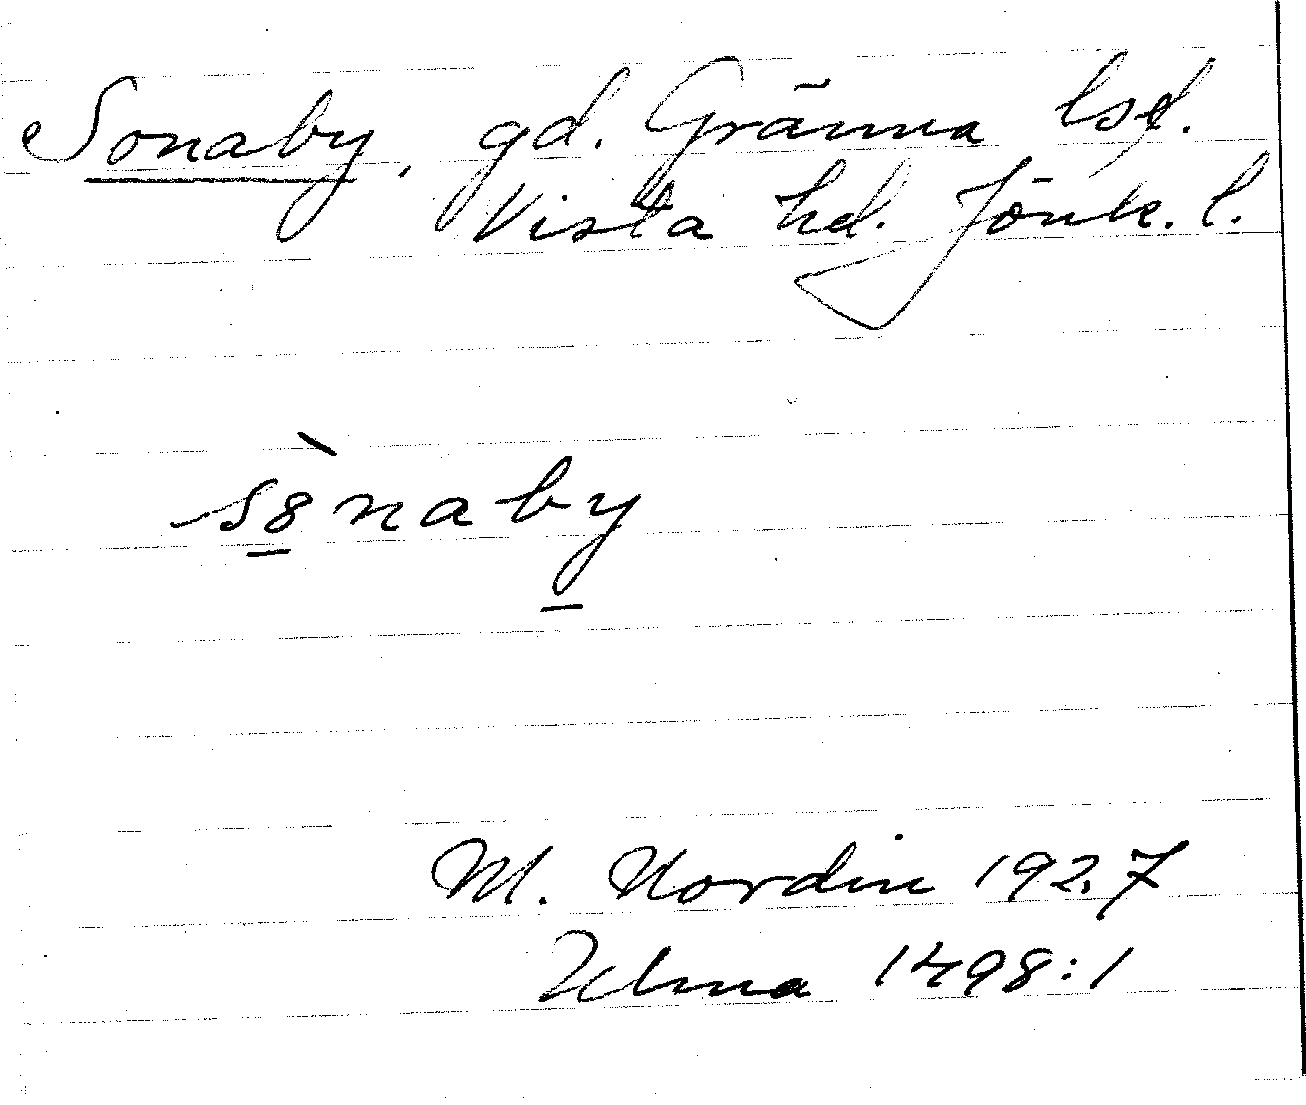 Sonaby, gd. Gränna lsf.
Vista hd. Jönk. l.
s8̀naby
M. Nordin 1927
Ulma 1498:1